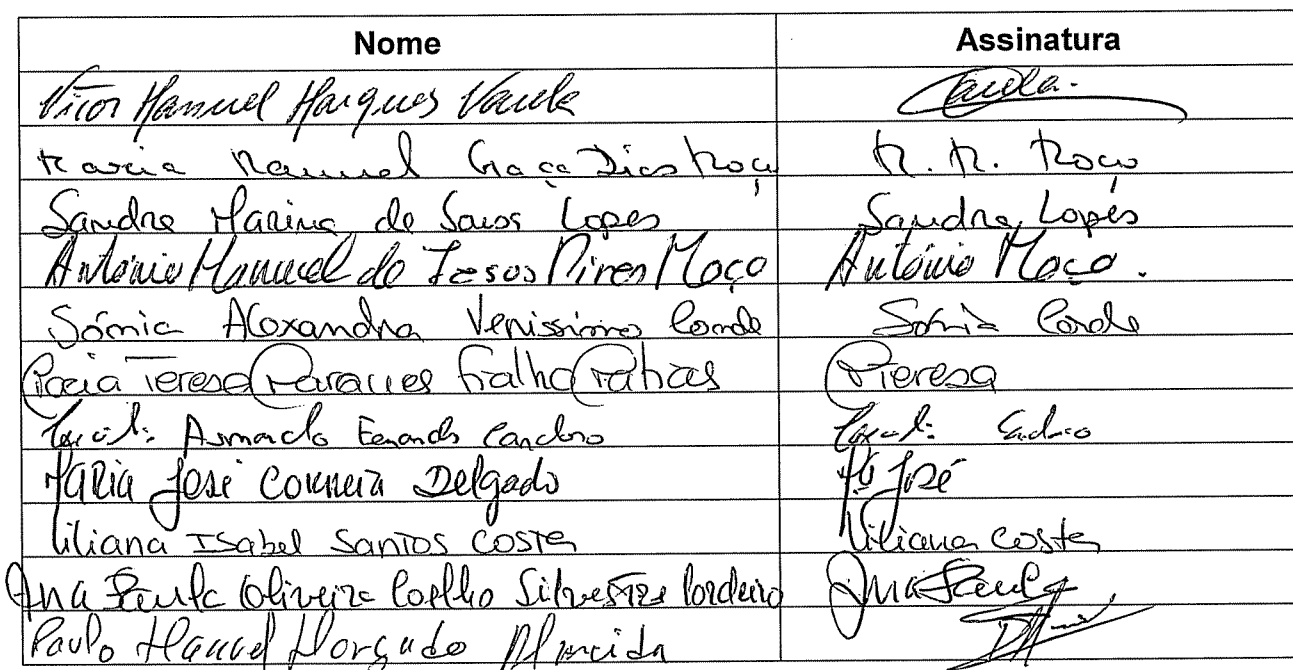 Nome Assinatura
Vitor Manuel Marques Varela Varela.
Maria Manuel Graça Dias Roço M. M. Roço
Sandra Marina de Sousa Lopes Sandra Lopes
António Manuel de Jesus Pires Moço António Moço.
Sónia Alexandra Veríssimo Conde Sónia Conde
Maria Teresa Marques Fialho Matias MTeresa
Armando Fernandes Cardoso
Maria José Correia Delgado Mª José
Liliana Isabel Santos Costa Liliana Costa
Ana Paula Oliveira Coelho Silvestre Cordeiro Ana Paula
Paulo Manuel Morgado Almeida